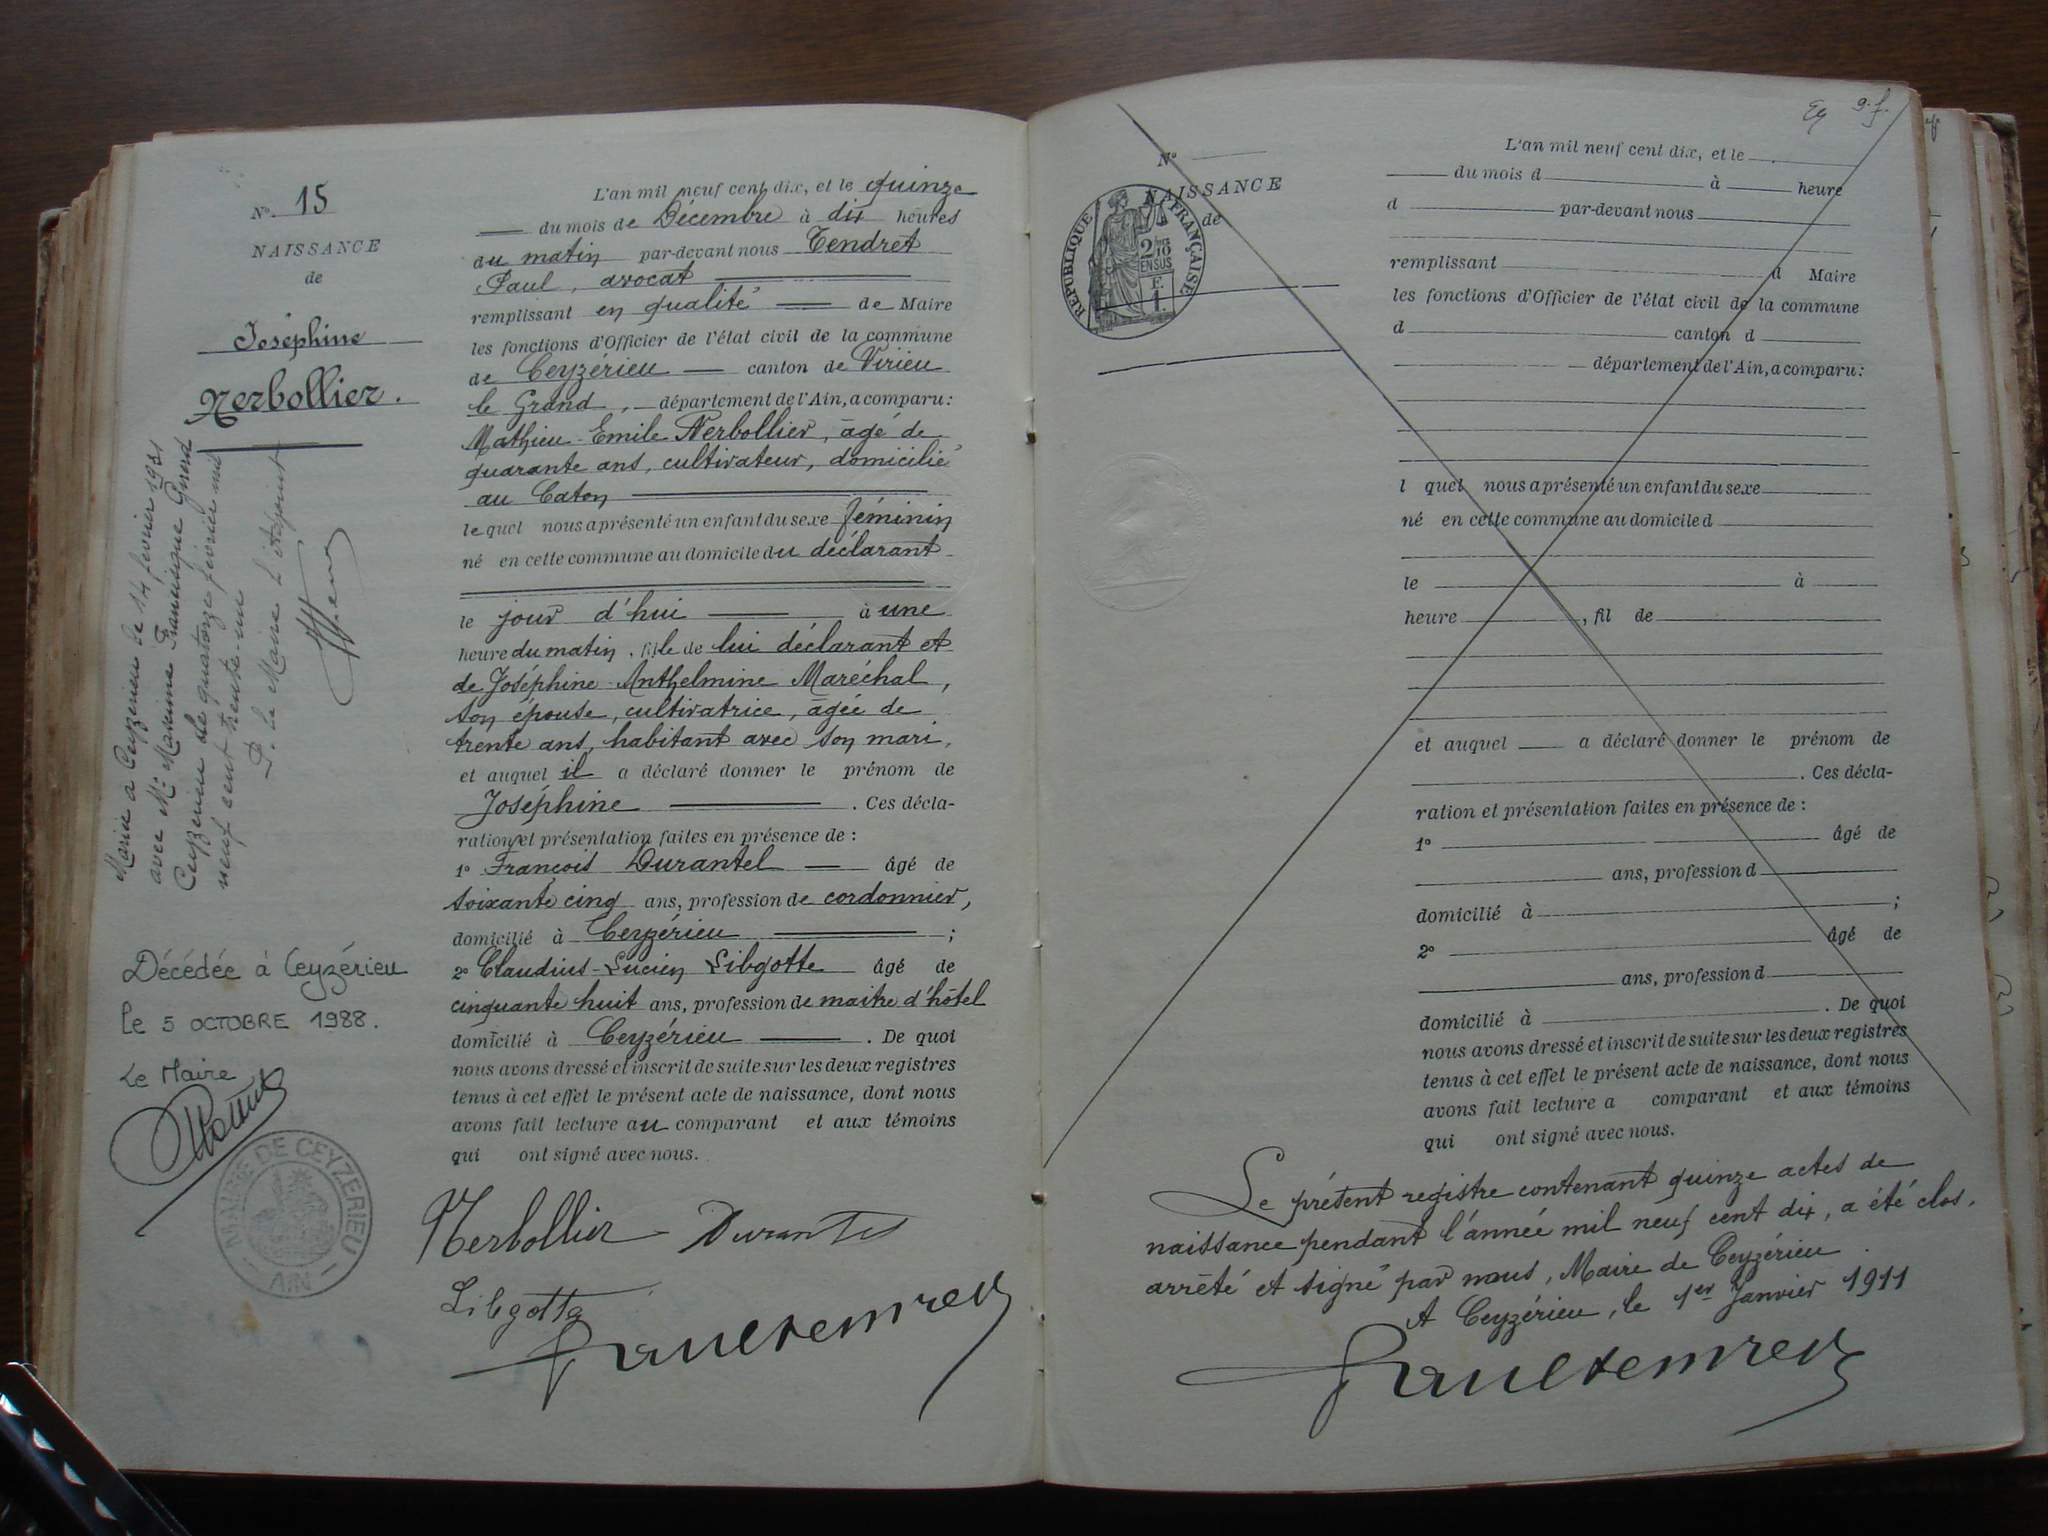 N° 15
NAISSANCE
de
Joséphine
Nerbollier.
Marié à Ceyzérieu le 14 février 1931
avec Mr Maxime Françisque Girerd
Ceyzérieu le quatorze février mil
neuf cent trente-un
P. le Maire L'adjoint
Décédée à Ceyzérieu
le 5 OCTOBRE 1988.
Le Maire
MAIRIE DE CEYZERIEU
AIN
L'an mil neuf cent dix, et le quinze
du mois de Décembre à dix heures
au matin par-devant nous Tendret
Paul, avocat
remplissant en qualité de Maire
les fonctions d'Officier de l'état civil de la commune
de Ceyzérieu canton de Virieu
le Grand, département de l'Ain, a comparu:
Mathieu-Emile Nerbollier, âgé de
quarante ans, cultivateur, domicilié
au Caton
le quel nous a présenté un enfant du sexe féminin
né en cette commune au domicile du déclarant
le jour d'hui à une
heure du matin, fille de lui déclarant et
de Joséphine-Anthelmine Maréchal,
son épouse, cultivatrice, âgée de
trente ans, habitant avec son mari,
et auquel il a déclaré donner le prénom de
Joséphine . Ces décla-
ration et présentation faites en présence de :
1° François Durantel âgé de
soixante cinq ans, profession de cordonnier,
domicilié à Ceyzérieu ;
2° Claudius-Lucien Libgotte âgé de
cinquante huit ans, profession de maitre d'hôtel
domicilié à Ceyzérieu . De quoi
nous avons dressé et inscrit de suite sur les deux registres
tenus à cet effet le présent acte de naissance, dont nous
avons fait lecture au comparant et aux témoins
qui ont signé avec nous.
Nerbollier Durantel
Libgotte
Paul Tendret
9. f.
N°
NAISSANCE
de
RÉPUBLIQUE FRANÇAISE
2/10
EN SUS
F.
1.
L'an mil neuf cent dix, et le
du mois d à heure
d par-devant nous
remplissant d Maire
les fonctions d'Officier de l'état civil de la commune
d canton d
département de l'Ain, a comparu:
l quel nous a présenté un enfant du sexe
né en cette commune au domicile d
le à
heure , fil de
et auquel a déclaré donner le prénom de
. Ces décla-
ration et présentation faites en présence de :
1° âgé de
ans, profession d
domicilié à ;
2° âgé de
ans, profession d
domicilié à . De quoi
nous avons dressé et inscrit de suite sur les deux registres
tenus à cet effet le présent acte de naissance, dont nous
avons fait lecture a comparant et aux témoins
qui ont signé avec nous.
Le présent registre contenant quinze actes de
naissance pendant l'année mil neuf cent dix, a été clos,
arrêté et signé par nous, Maire de Ceyzérieu.
A Ceyzérieu, le 1er Janvier 1911
Paul Tendret